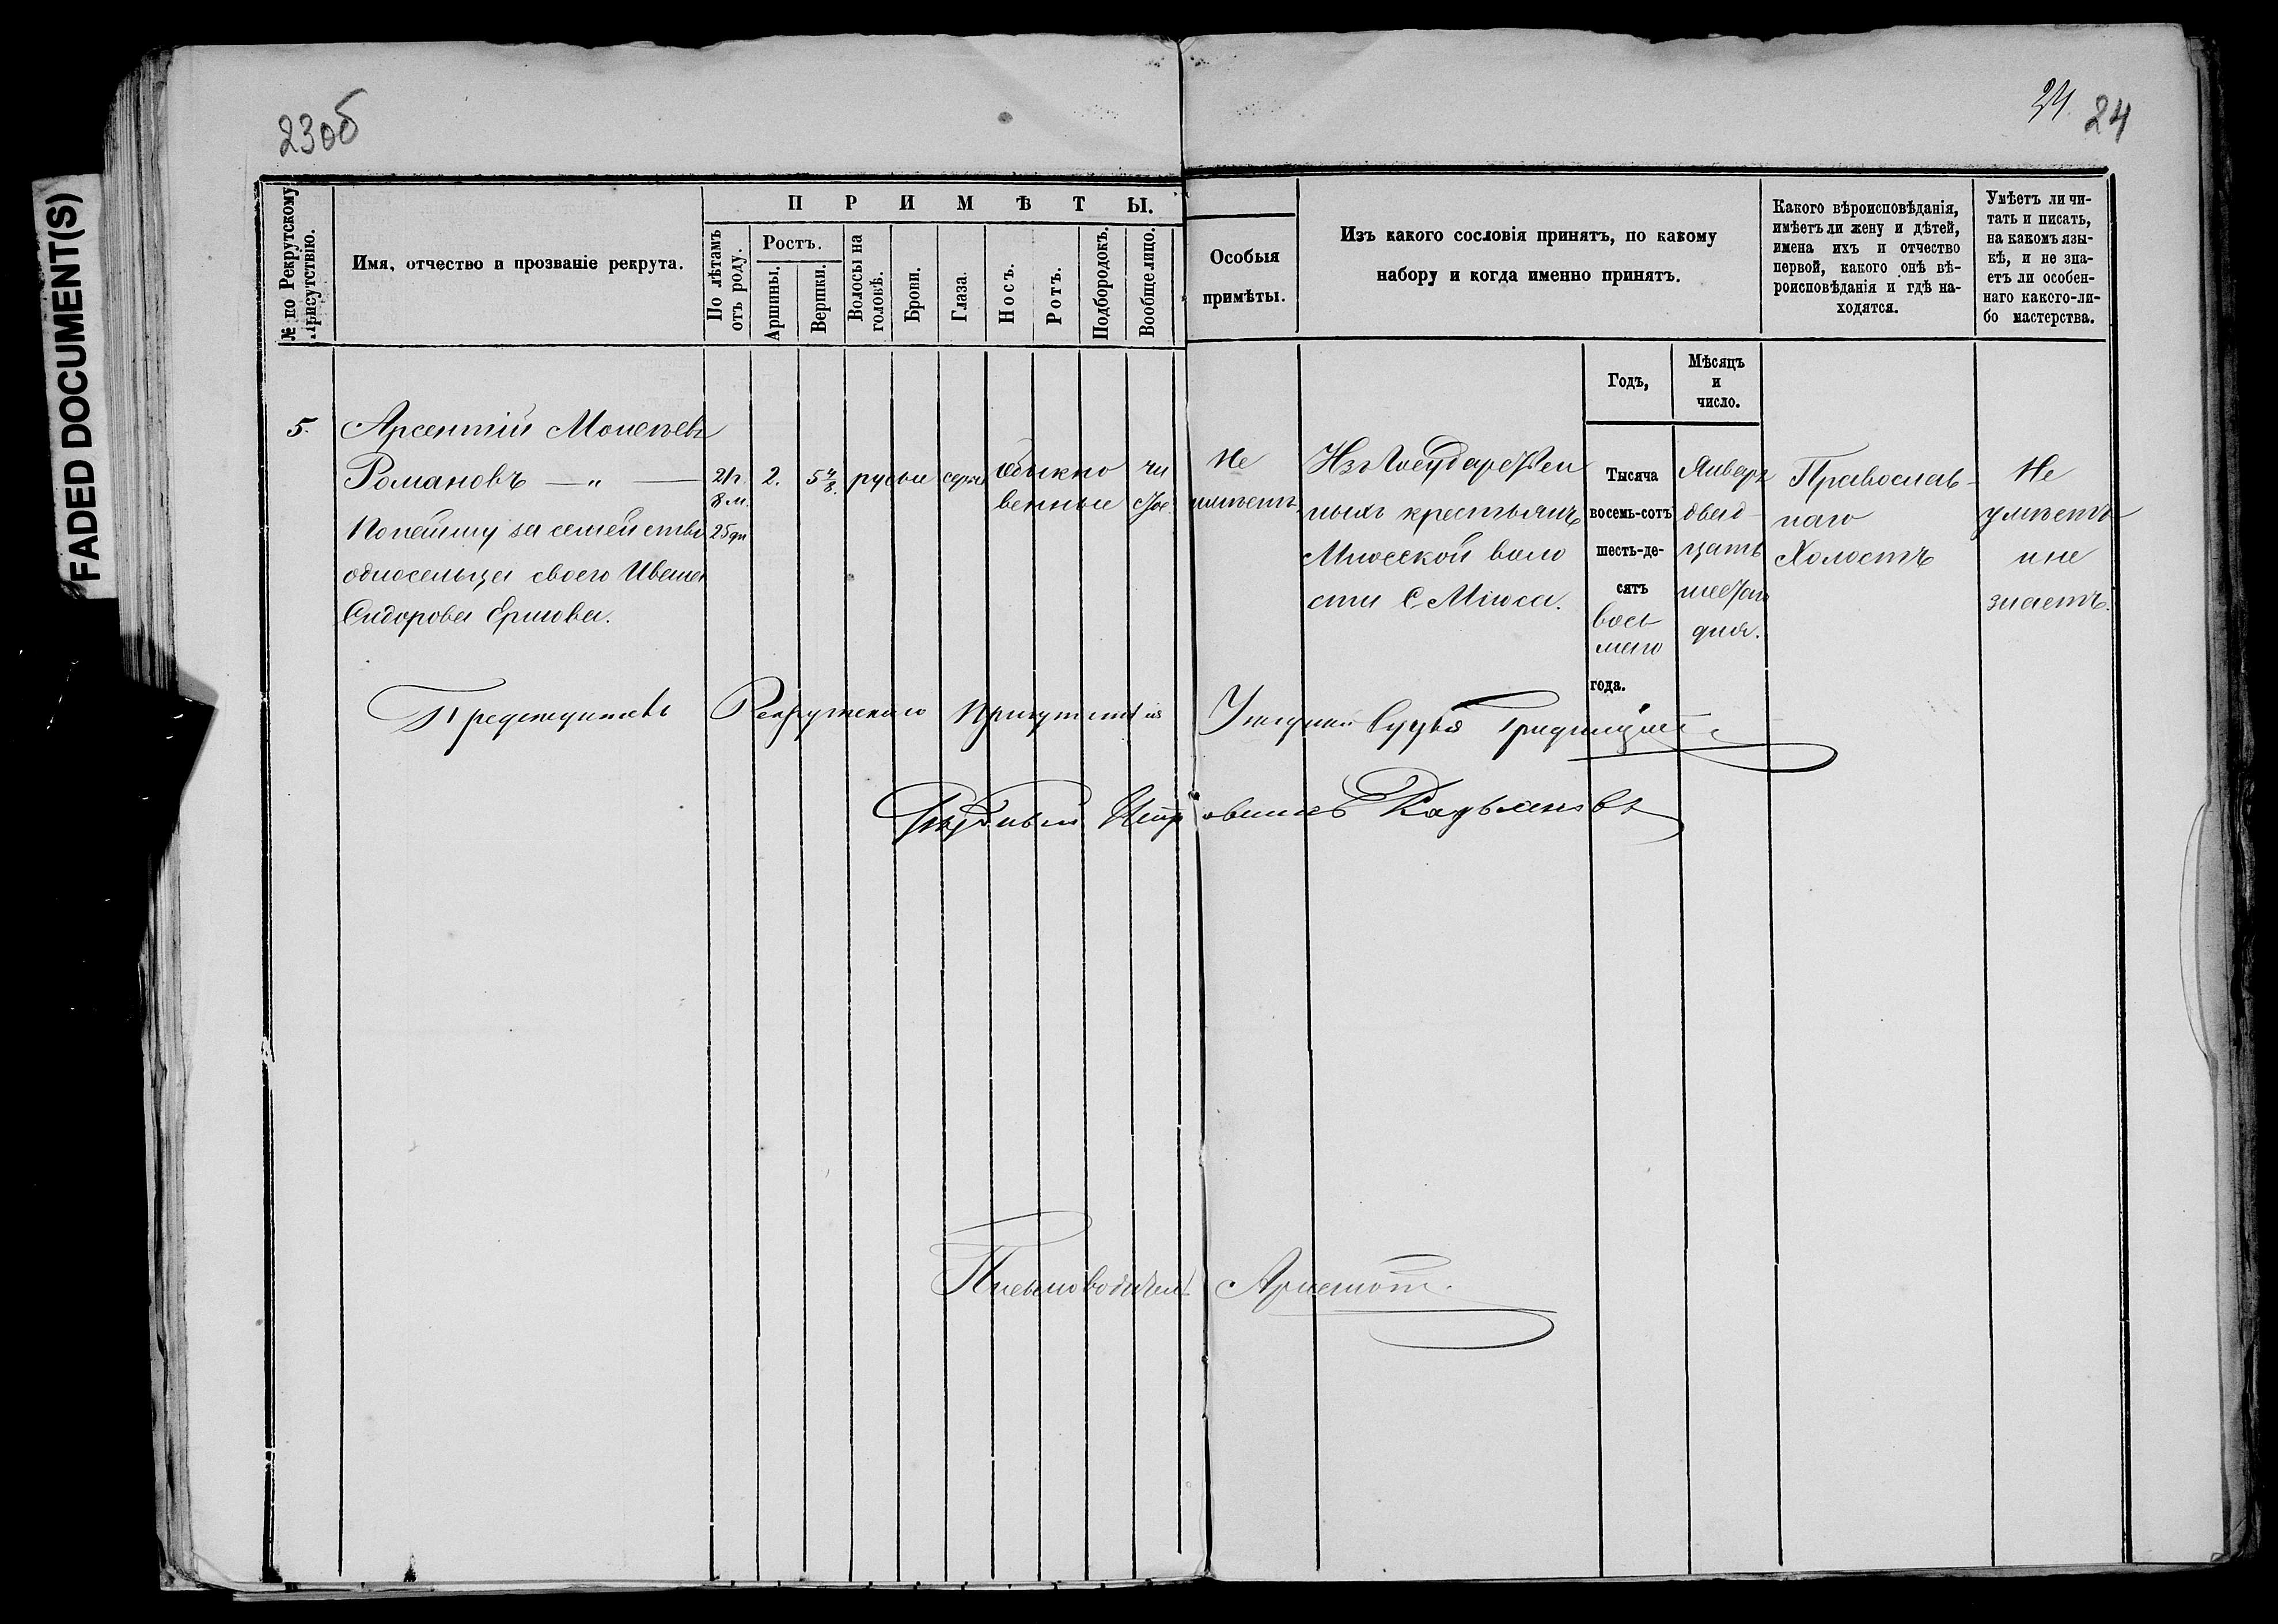 FADED DOCUMENT(S)
23об
24. 24
№ по Рекрутскому Присутствію.
Имя, отчество и прозваніе рекрута.
ПРИМѢТЫ.
По лѣтамъ отъ роду.
Ростъ.
Аршины.
Вершки.
Волосы на головѣ.
Брови.
Глаза.
Носъ.
Ротъ.
Подбородокъ.
Вообще лицо.
Особыя
примѣты.
Изъ какого сословія принятъ, по какому
набору и когда именно принятъ.
Какого вѣроисповѣданія,
имѣетъ ли жену и дѣтей,
имена ихъ и отчество
первой, какого онѣ вѣ-
роисповѣданія и гдѣ на-
ходятся.
Умѣетъ ли чи-
тать и писать,
на какомъ язы-
кѣ, и не зна-
етъ ли особен-
наго какого-ли-
бо мастерства.
Годъ,
Мѣсяцъ
и
число.
5.
Арсентій
Романовъ — „ —
за семейство
односельца своего Ивана
Сидорова Ершова.
21 г.
8 м.
25 дн
2.
5 ⅞.
русыи
сѣрые
обыкно
венныи
чи
стое.
Не
имѣетъ.
Изъ Государствен
ныхъ крестьянъ
Міюсской воло
сти С. Міюса.
Тысяча
восемь-сотъ
шесть-де-
сятъ
вось
маго
года.
Январь
двад
цать
шестаго
дня.
Православ-
наго
Холостъ
Не
умѣетъ
и не
знаетъ.
Предсѣдатель Рекрутскаго Присутствія Уѣздный Судья
Письмоводитель